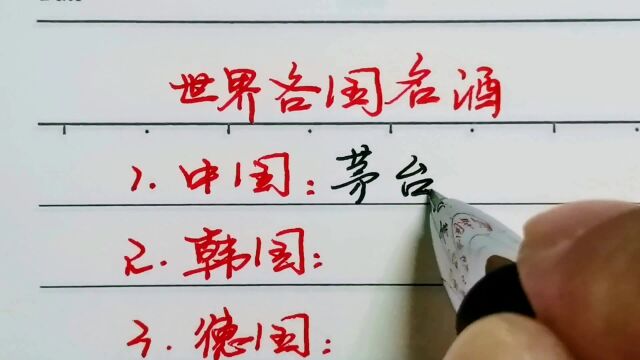 世界各国名酒
1.中国:茅台
2.韩国:
3.德国: